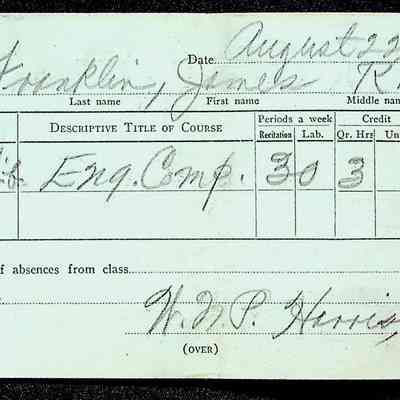 Date August 22
Franklin, James R.
Last name First name Middle nam
DESCRIPTIVE TITLE OF COURSE Periods a week Credit
Recitation Lab. Qr. Hrs Un
Eng. Comp. 3 0 3
f absences from class
W. N. P. Harris,
(OVER)